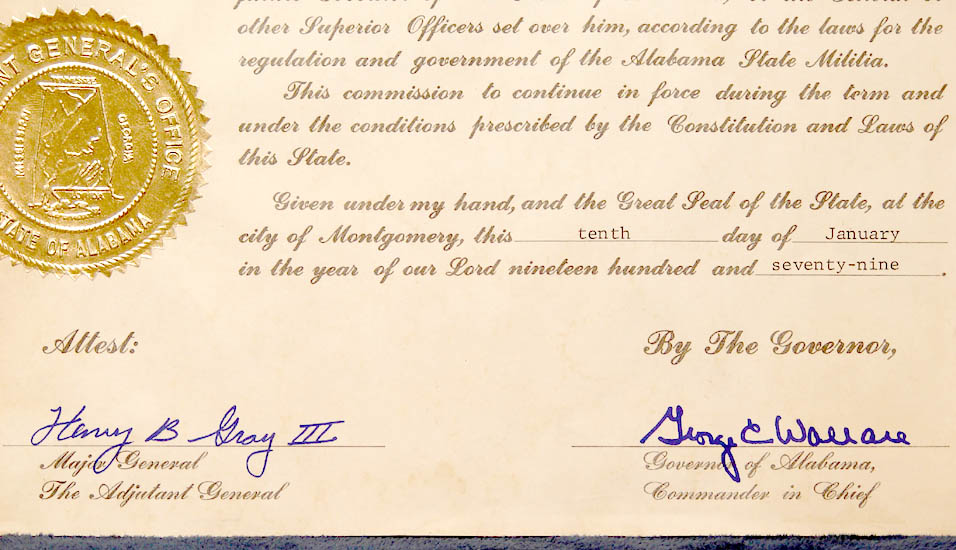 other Superior Officers set over him, according to the laws for the
regulation and government of the Alabama State Militia.
This commission to continue in force during the term and
under the conditions prescribed by the Constitution and Laws of
this State.
Given under my hand, and the Great Seal of the State, at the
city of Montgomery, this tenth day of January
in the year of our Lord nineteen hundred and seventy-nine.
NT GENERAL'S OFFICE
MISSISSIPPI
GEORGIA
STATE OF ALABAMA
Attest:
By The Governor,
Henry B Gray III
George C Wallace
Major General
The Adjutant General
Governor of Alabama,
Commander in Chief